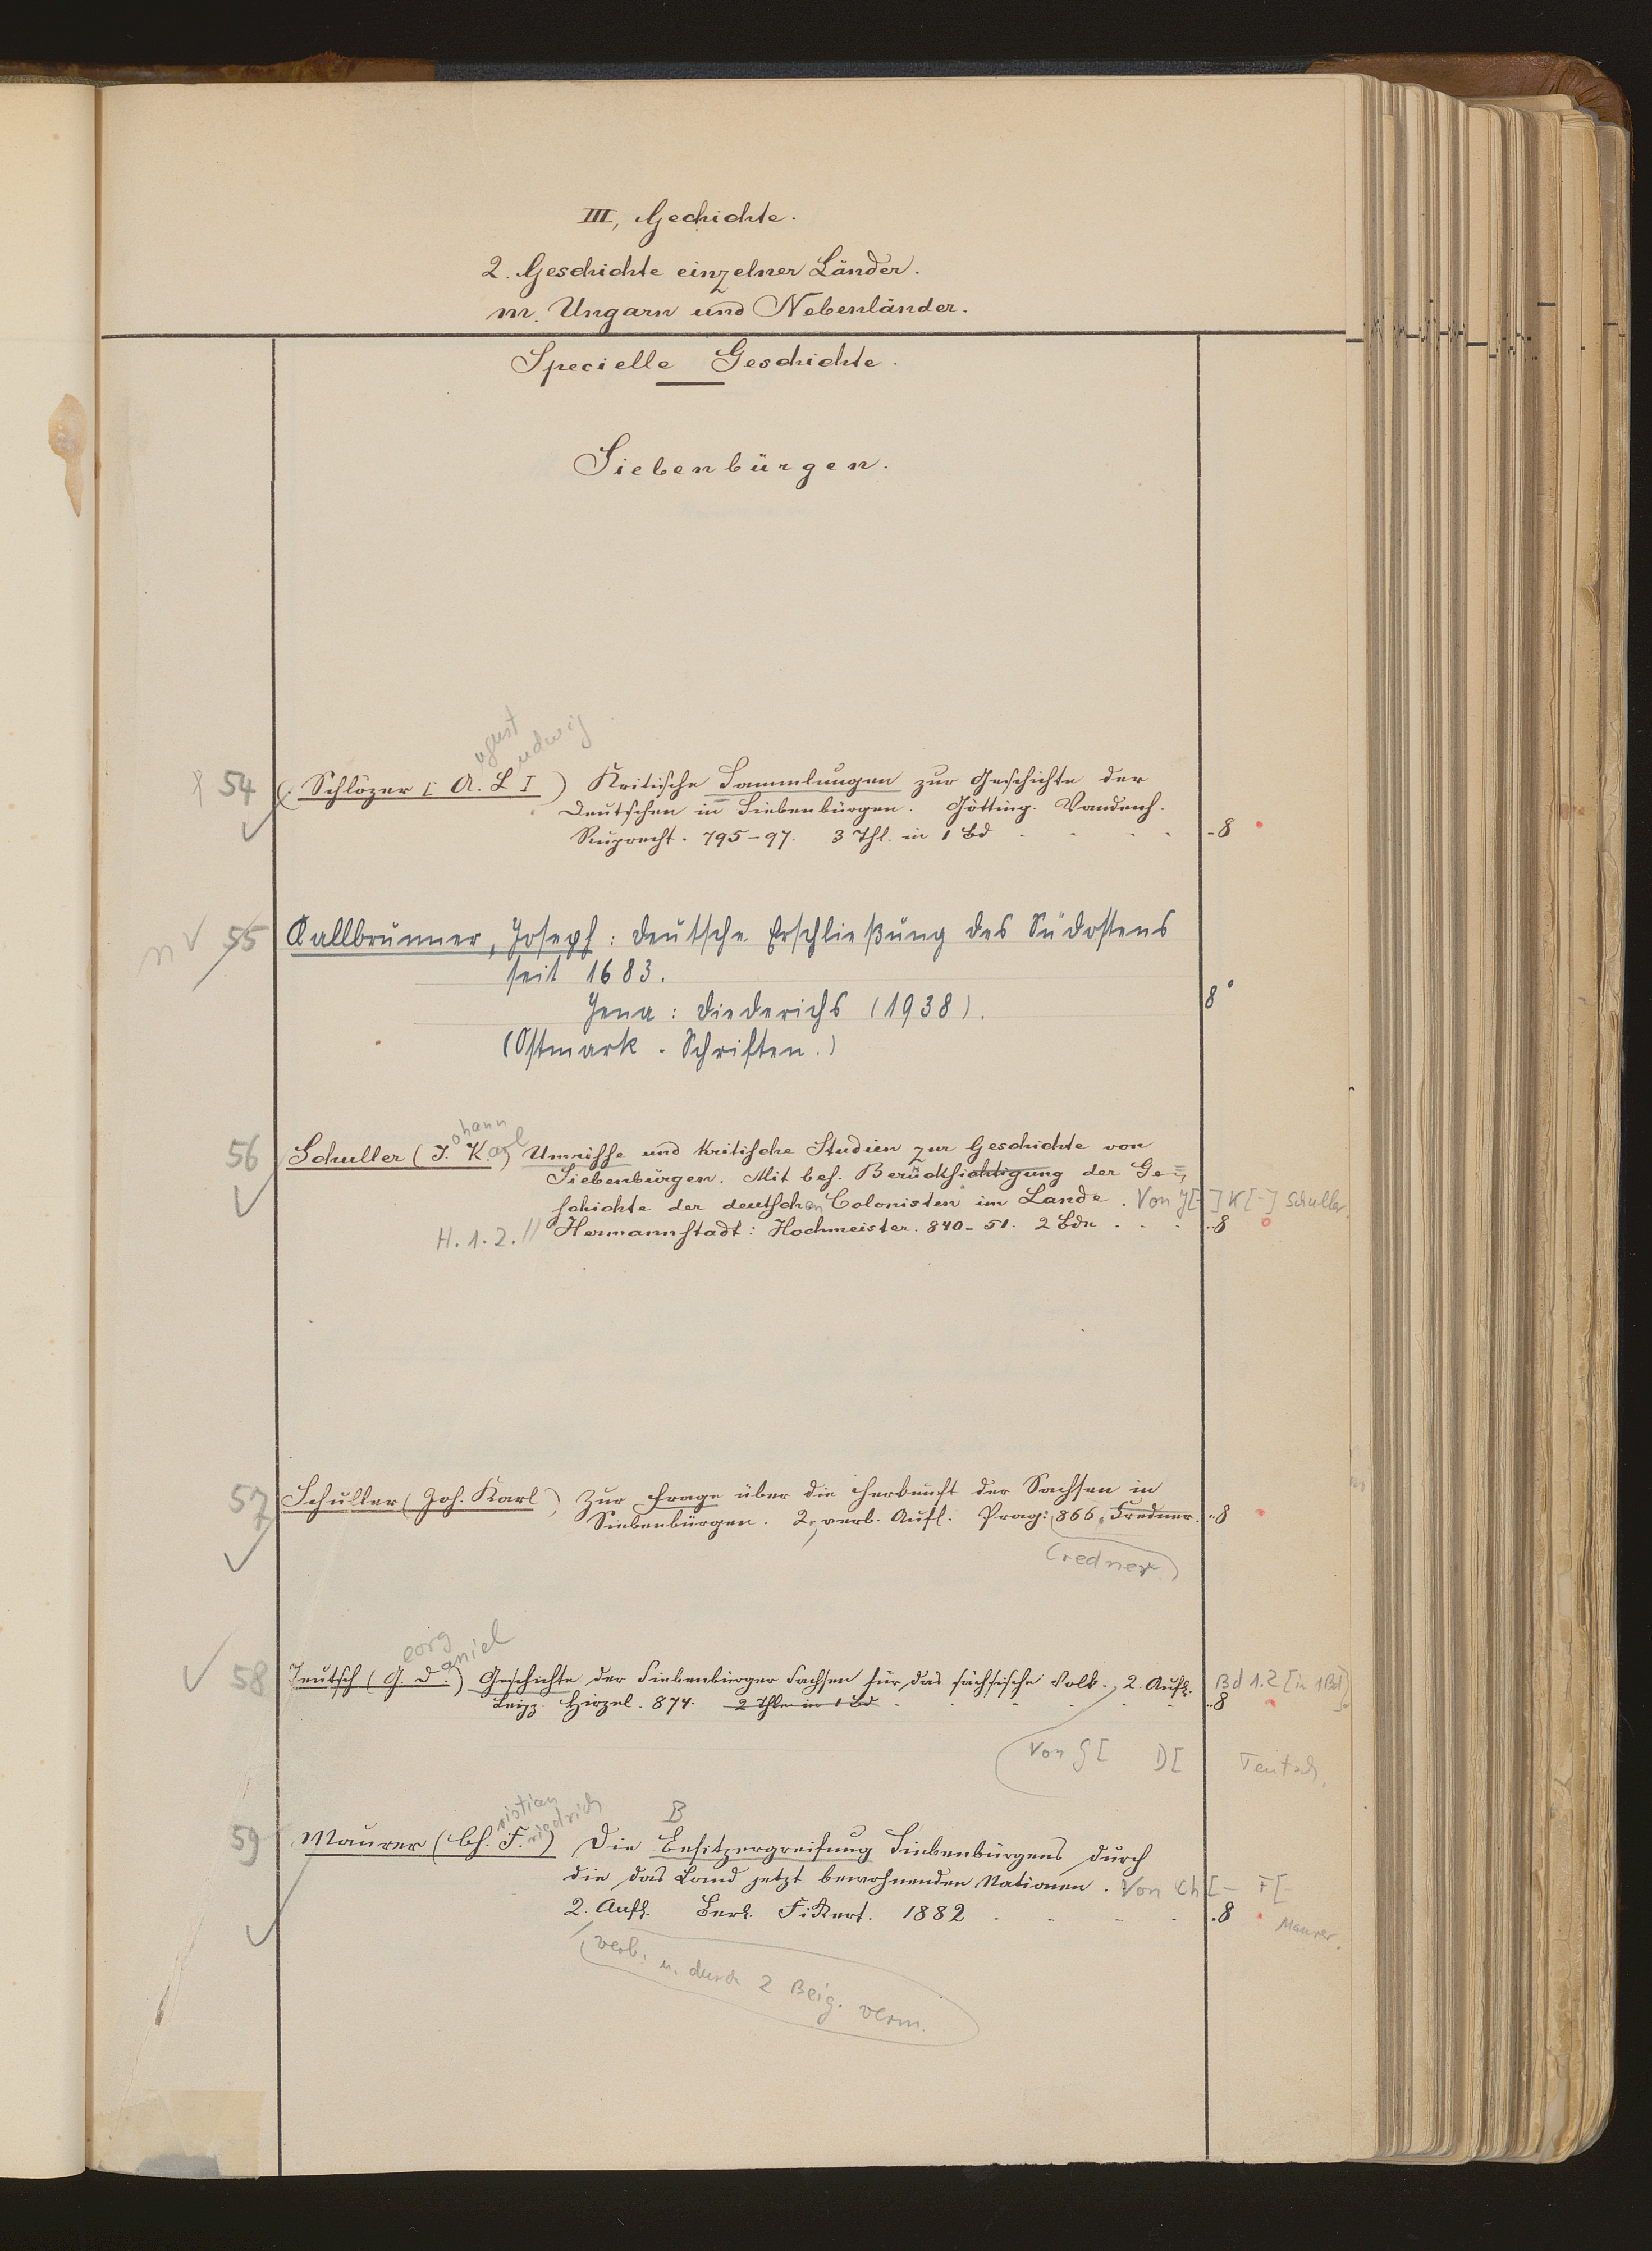 III, Gechichte.
2. Geschichte einzelner Länder.
m. Ungarn und Nebenländer.
Specielle Geschichte.
Siebenbürgen.
ugust udwig
54 (Schlözer [ A. L ]) Kritische Sammlungen zur Geschichte der
Deutschen in Siebenbürgen. Götting. Vandenh.
Ruprecht. 795-97. 3 Thl. in 1 Bd - - - - -8
n √ 55 Kallbrunner, Joseph: Deutsche Erschließung des Südostens
seit 1683.
8°
Jena: Diederichs (1938).
(Ostmark-Schriften.)
ohann
56 Schuller (J. Karl) Umrisse und kritische Studien zur Geschichte von
Siebenbürgen. Mit bes. Berücksichtigung der Ge=
schichte der deutschen Colonisten im Lande. Von J[-] K[-] Schuller.
H. 1. 2. // Hermannstadt: Hochmeister. 840-51. 2 Bde - - - ..8
57 Schuller (Joh. Karl) Zur Frage über die Herkunft der Sachsen in
Siebenbürgen. 2., verb. Aufl. Prag: 866, Fredner. ..8
Credner
eorg aniel
√ 58 Teutsch (G. D.) Geschichte der Siebenbürger Sachsen für das sächsische Volk., 2. Aufl. Bd 1.2 [in 1 Bd]
Leipz. Hirzel. 874. 2 Thle in 1 Bd - - - - - ..8
Von G[ D[ Teutsch.
ristian riedrich B
59 Maurer (Ch. F.) Die Besitzergreifung Siebenbürgens durch
die das Land jetzt bewohnenden Nationen. Von Ch[- F[-
2. Aufl. Berl. Fikert. 1882 - - - - .8 Maurer.
verb. u. durch 2 Beig. verm.